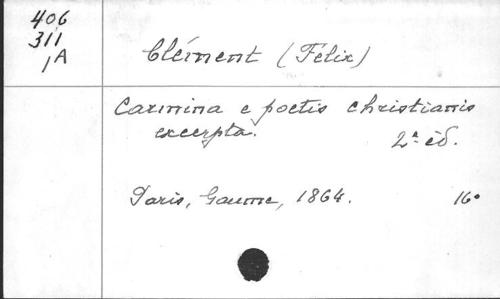 406
311
1A
Clément (Félix)
Carmina e poetis christianis
excerpta.
2ª éd.
Paris, Gaume, 1864. 16º